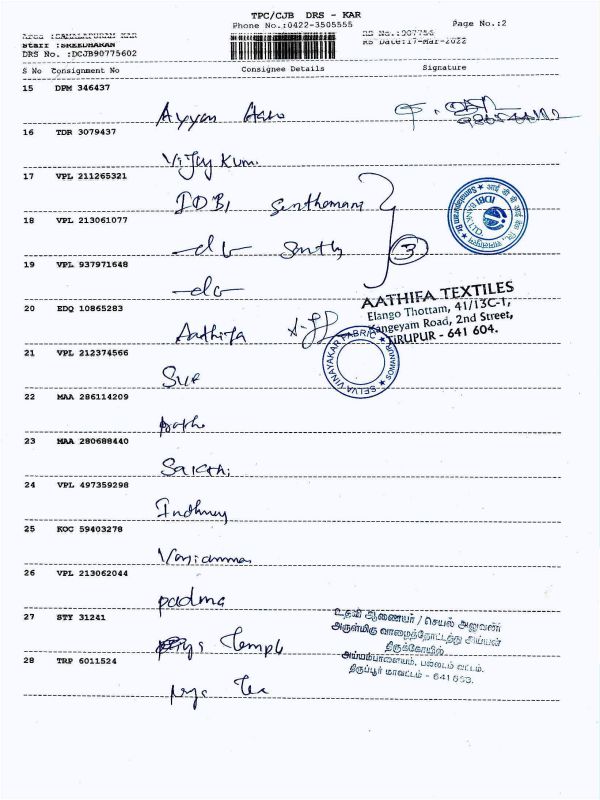 TPC/CJB DRS - KAR
Phone No.:0422-3505555
Page No.:2
Area :SAMALAPURAM KAR
RS No.:907756
Staff :SREEDHARAN
RS Date:17-Mar-2022
DRS No. :DCJB90775602
S No Consignment No Consignee Details Signature
15 DPM 346437
16 TDR 3079437
Vijay Kum
17 VPL 211265321
IDBI Senthamarai
18 VPL 213061077
-do-
3
19 VPL 937971648
-do-
20 EDQ 10865283
Aathifa
AATHIFA TEXTILES
Elango Thottam, 41/13C-1,
Kangeyam Road, 2nd Street,
TIRUPUR - 641 604.
SELVA VINAYAKAR FABRIC
SOMANUR
21 VPL 212374566
22 MAA 286114209
23 MAA 280688440
Sakthi
24 VPL 497359298
25 KOC 59403278
26 VPL 213062044
padma
27 STY 31241
Temple
உதவி ஆணையர் / செயல் அலுவலர்
அருள்மிகு வாழைத்தோட்டத்து அய்யன்
திருக்கோயில்
அய்யம்பாளையம், பல்லடம் வட்டம்.
திருப்பூர் மாவட்டம் - 641 663.
28 TRP 6011524
Tex